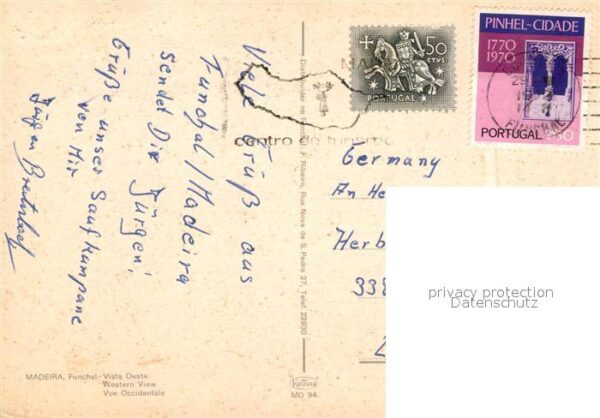 Viele Grüß. aus
Funchal/Madeira
sendet Dir Jürgen!
Grüße unser Saufkumpane
von Mir
Jürgen
MADEIRA, Funchal - Vista Oeste
Western View
Vue Occidentale
Distribuidor no Funchal: F. Ribeiro, Rua Nova de S. Pedro 27, Telef. 28930
MD 94
50
CTVS
PORTUGAL
PINHEL-CIDADE
1770
1970
PORTUGAL
FUNCHAL
centro de turismo
Germany
An He
Herb
338
privacy protection
Datenschutz